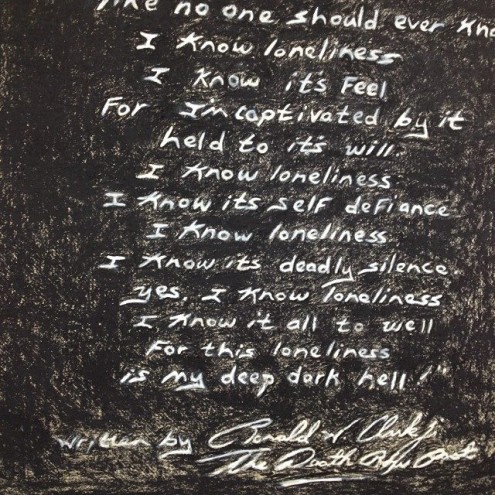 like no one should ever kno
I know loneliness
I know it's Feel
For I'm captivated by it
held to it's will.
I know loneliness
I know its self defiance
I know loneliness
I know its deadly silence.
yes, I know loneliness
I know it all to well
For this loneliness
is my deep dark hell!"
written by Ronald W. Clark Jr
The Death Row Poet